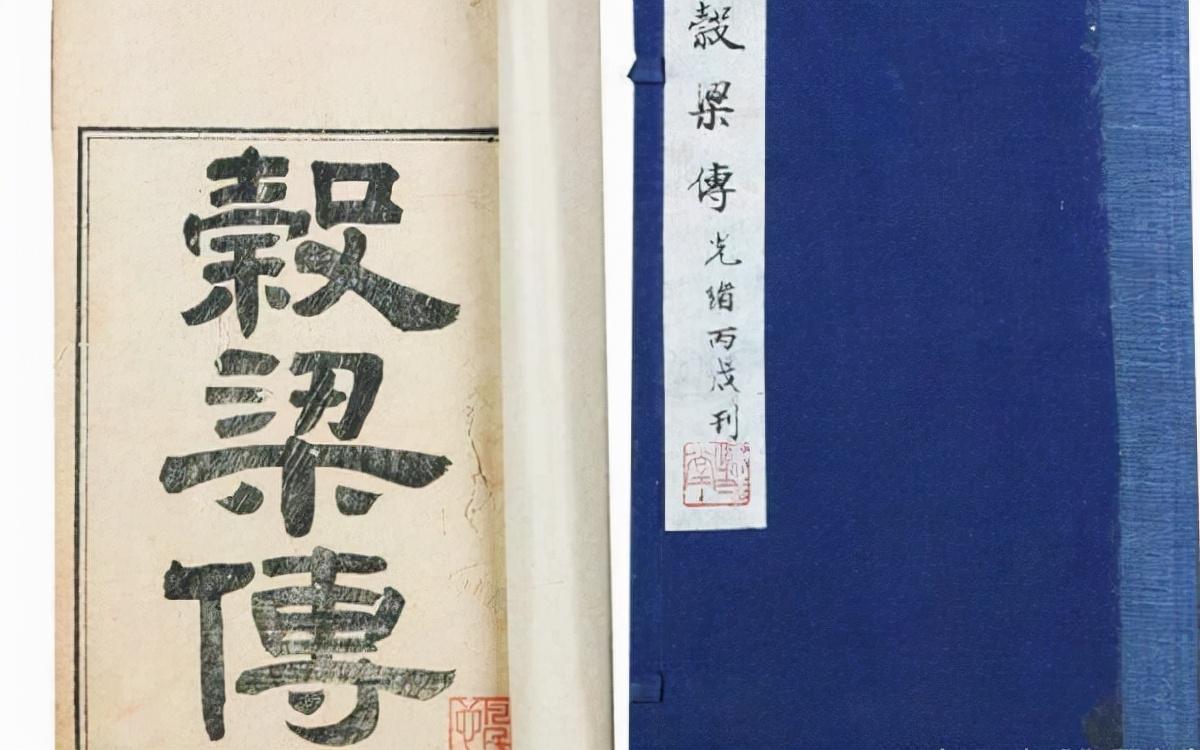 穀梁傳
穀梁傳 光緒丙戌刊